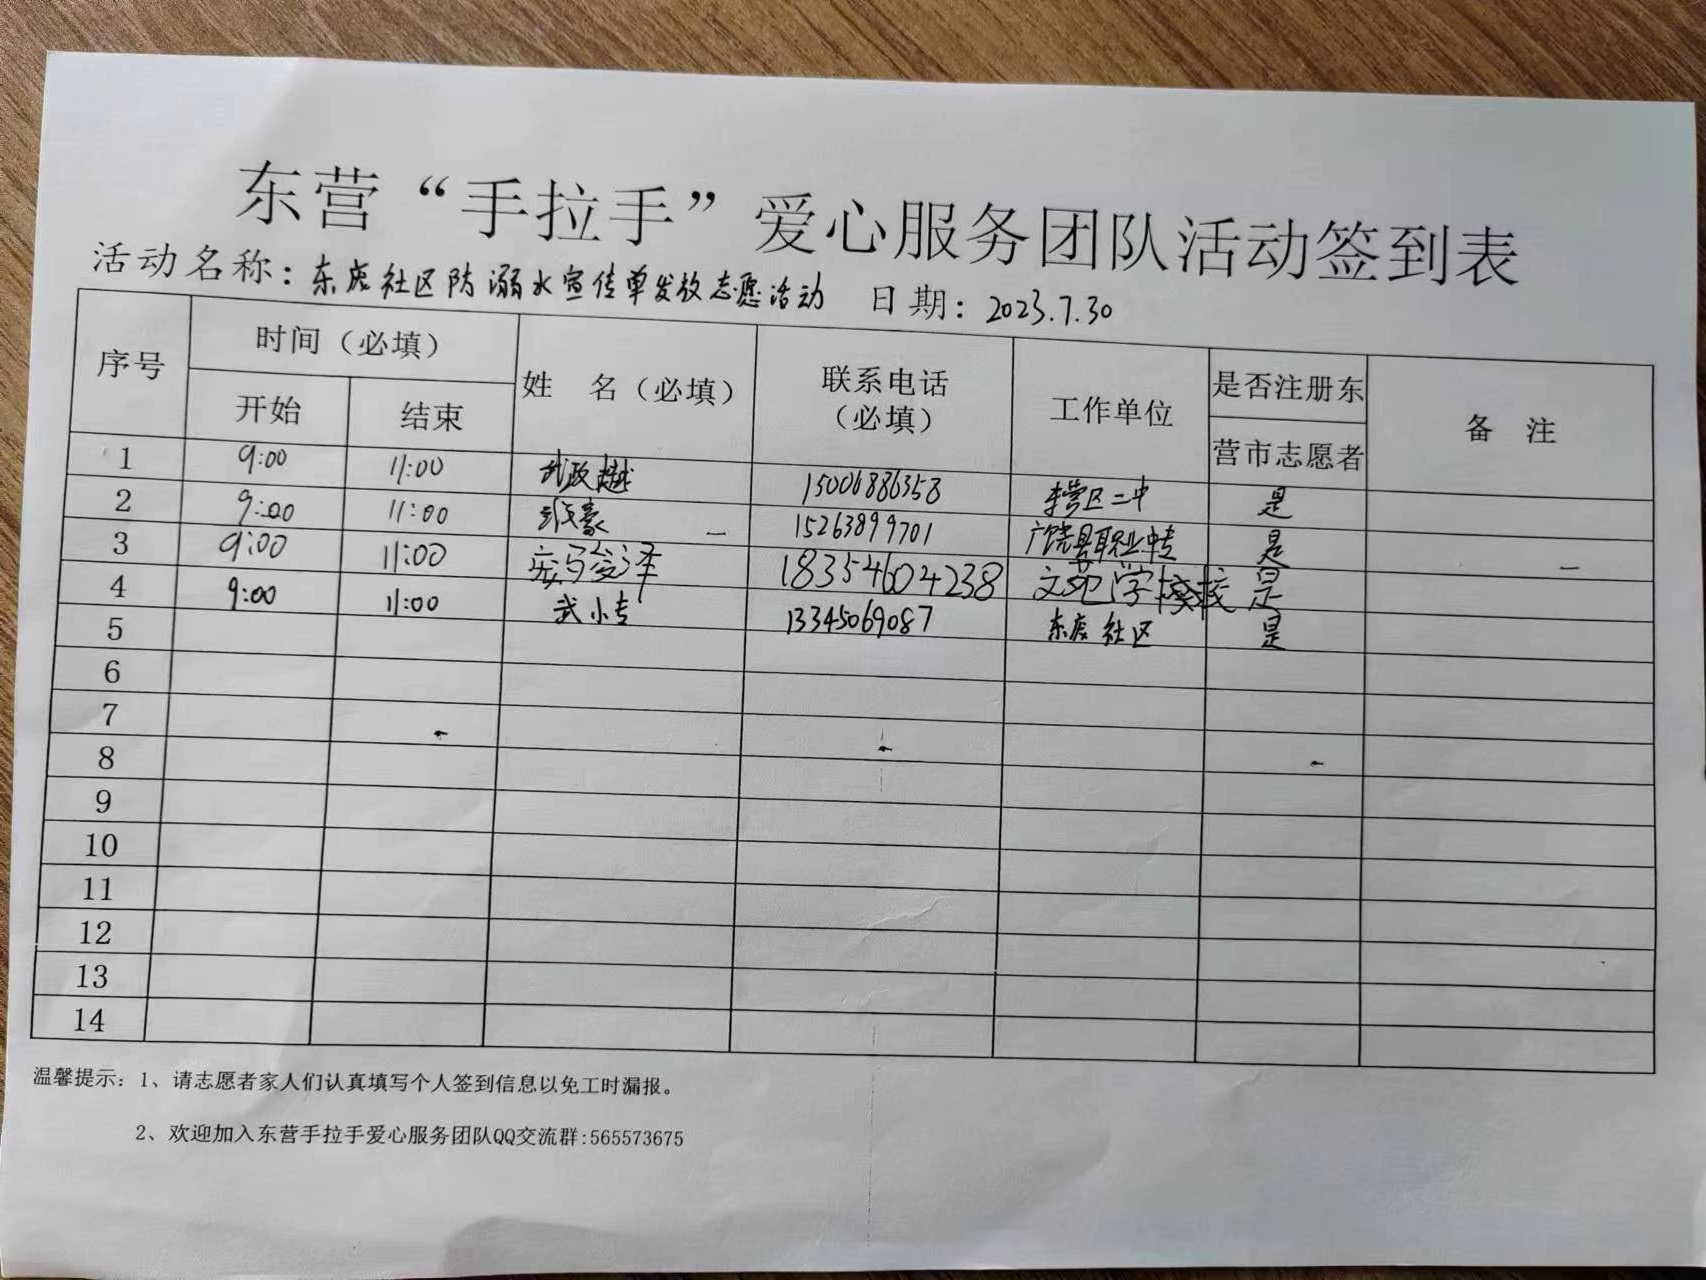 东营“手拉手”爱心服务团队活动签到表
活动名称：东虎社区防溺水宣传单发放志愿活动 日期：2023.7.30
序号 时间（必填） 姓 名（必填） 联系电话（必填） 工作单位 是否注册东营市志愿者 备 注
开始 结束
1 9:00 11:00 武政越 15006886358 东营区二中 是
2 9:00 11:00 豪 15263899701 广饶县职业中专 是
3 9:00 11:00 泽 18354604238 文苑学校 是
4 9:00 11:00 武小专 13345069087 东虎社区 是
5
6
7
8
9
10
11
12
13
14
温馨提示：1、请志愿者家人们认真填写个人签到信息以免工时漏报。
2、欢迎加入东营手拉手爱心服务团队QQ交流群:565573675